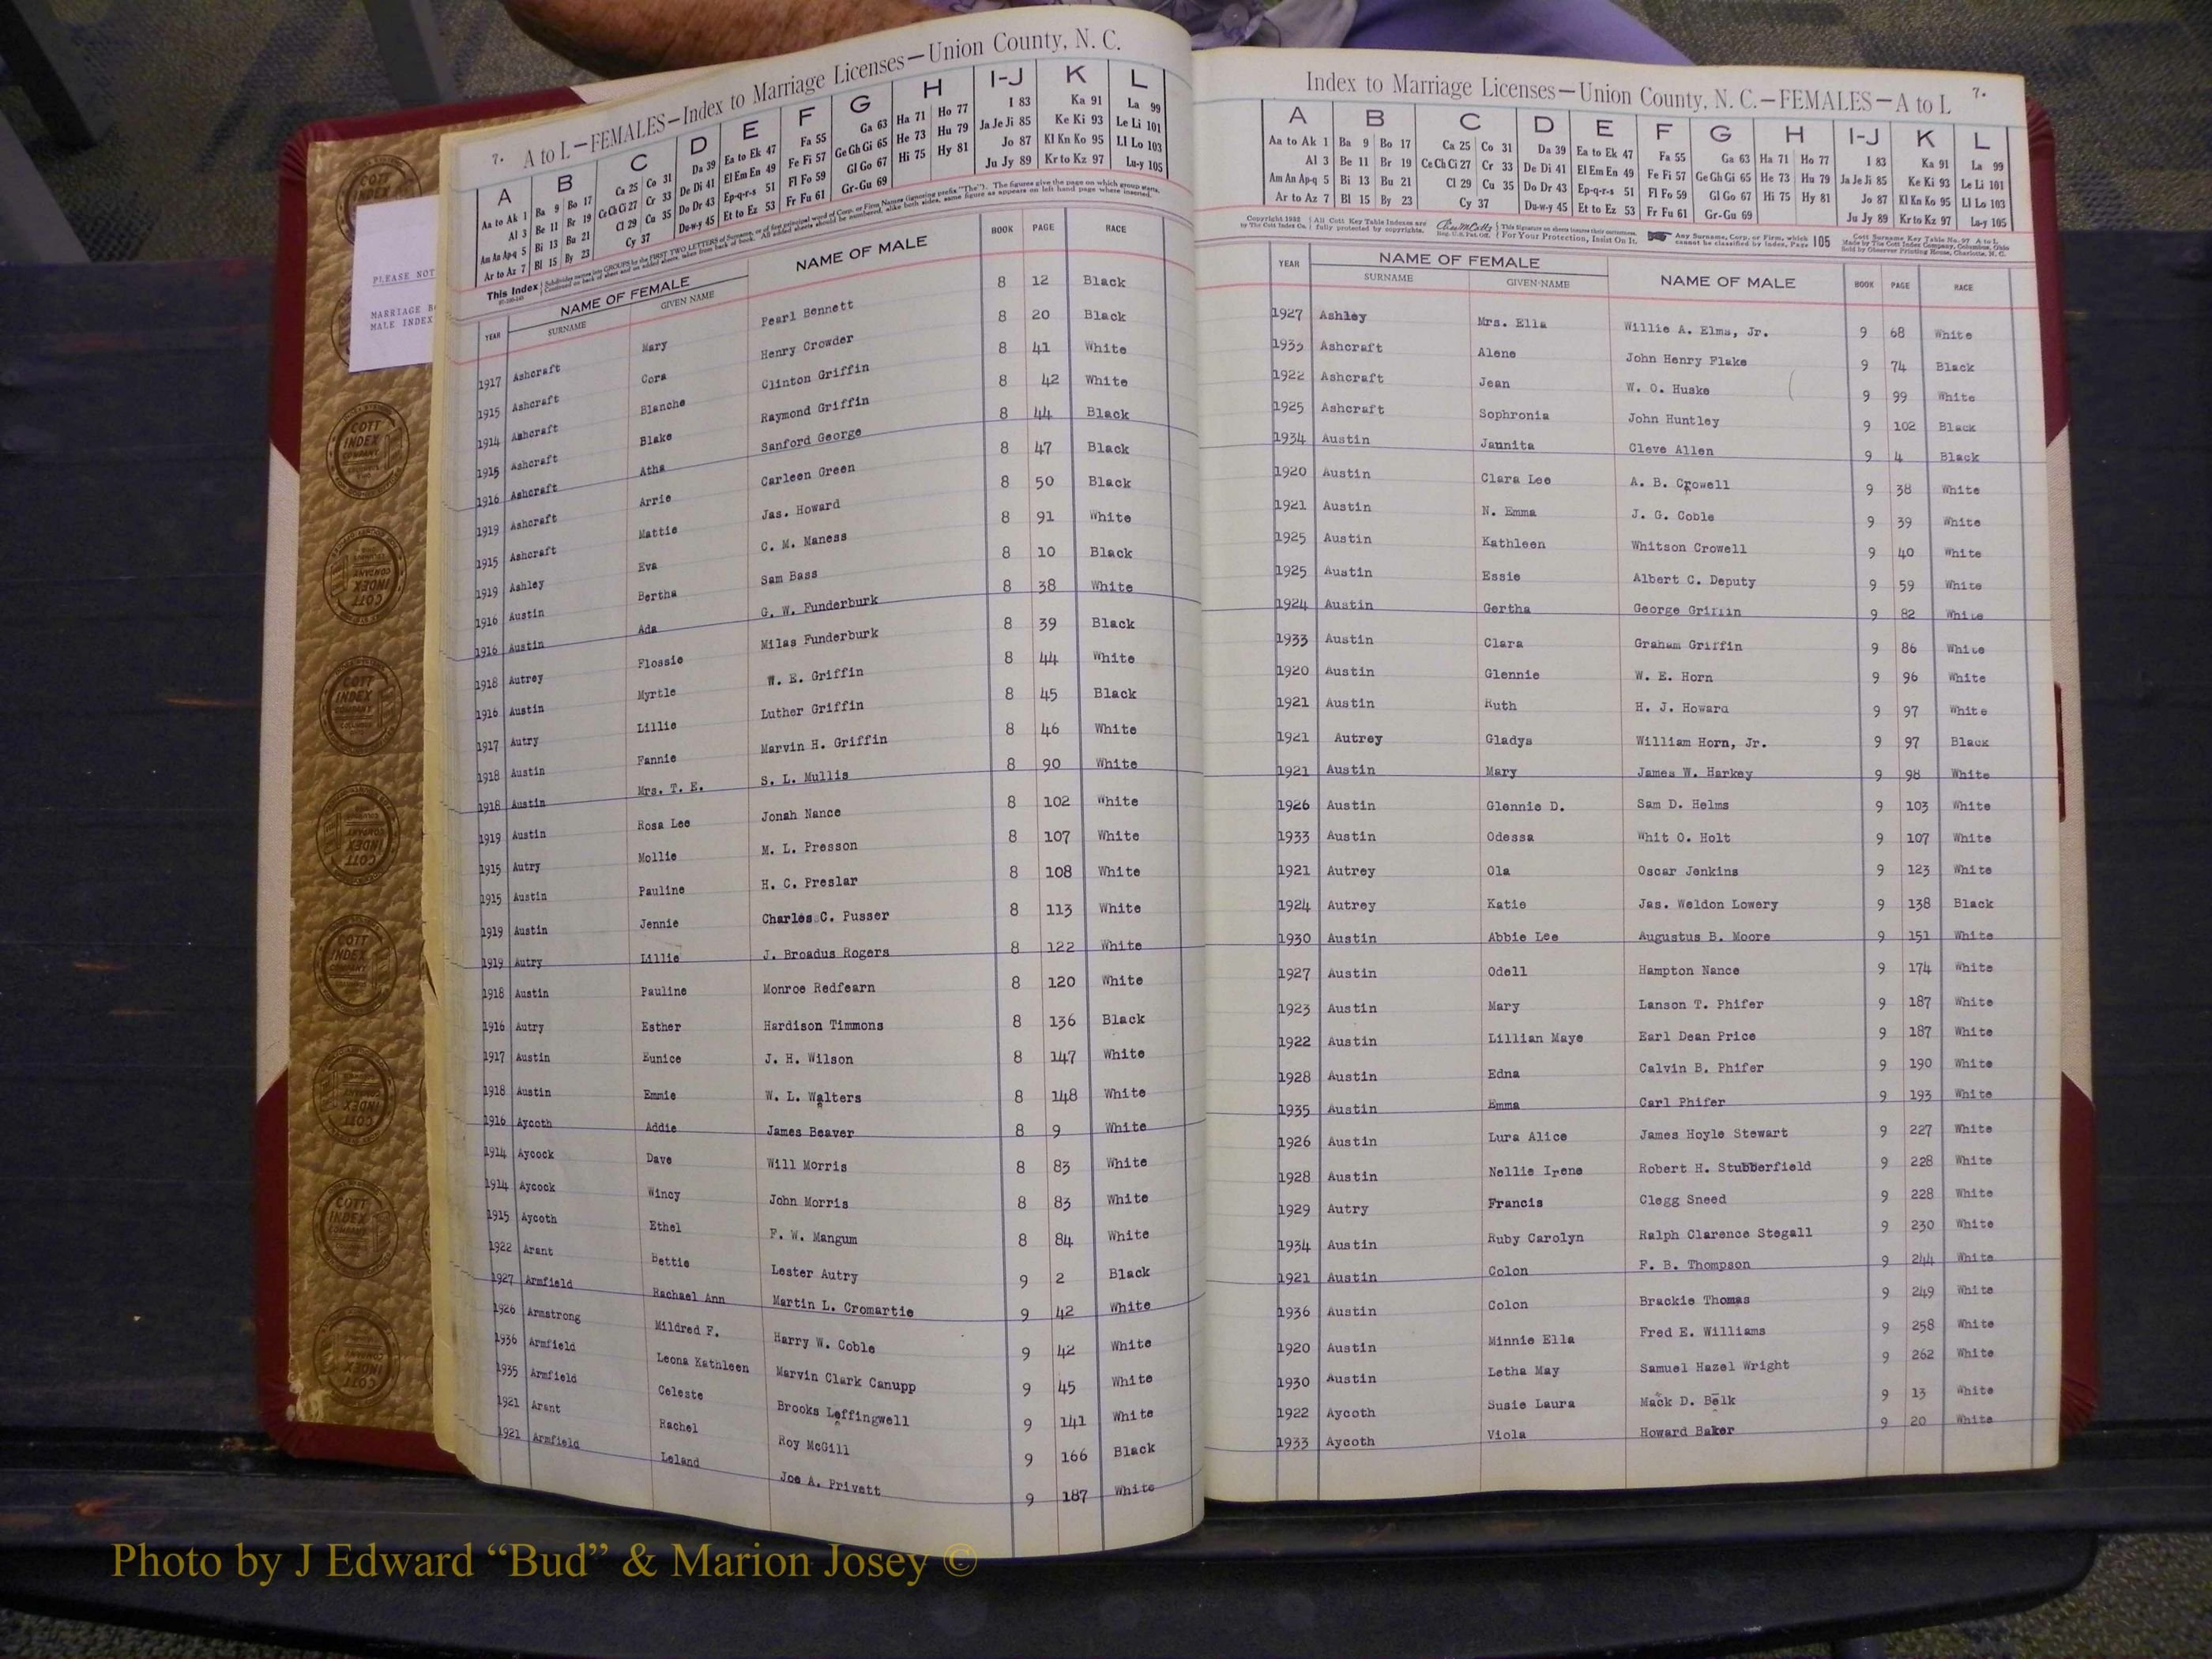 7. A to L—FEMALES—Index to Marriage Licenses—Union County, N. C.
A B C D E F G H I-J K L
Aa to Ak 1 Ba 9 Bo 17 Ca 25 Co 31 Da 39 Ea to Ek 47 Fa 55 Ga 63 Ha 71 Ho 77 I 83 Ka 91 La 99
Al 3 Be 11 Br 19 Ce Ch Ci 27 Cr 33 De Di 41 El Em En 49 Fe Fi 57 Ge Gh Gi 65 He 73 Hu 79 Ja Je Ji 85 Ke Ki 93 Le Li 101
Am An Ap-q 5 Bi 13 Bu 21 Cl 29 Cu 35 Do Dr 43 Ep-q-r-s 51 Fl Fo 59 Gl Go 67 Hi 75 Hy 81 Jo 87 Kl Kn Ko 95 Ll Lo 103
Ar to Az 7 Bl 15 By 23 Cy 37 Du-w-y 45 Et to Ez 53 Fr Fu 61 Gr-Gu 69 Ju Jy 89 Kr to Kz 97 Lu-y 105
This Index
YEAR NAME OF FEMALE NAME OF MALE BOOK PAGE RACE
SURNAME GIVEN NAME
1917 Ashcraft Mary Pearl Bennett 8 12 Black
1915 Ashcraft Cora Henry Crowder 8 20 Black
1914 Ashcraft Blanche Clinton Griffin 8 41 White
1915 Ashcraft Blake Raymond Griffin 8 42 White
1916 Ashcraft Atha Sanford George 8 44 Black
1919 Ashcraft Arrie Carleen Green 8 47 Black
1915 Ashcraft Mattie Jas. Howard 8 50 Black
1919 Ashley Eva C. M. Maness 8 91 White
1916 Austin Bertha Sam Bass 8 10 Black
1916 Austin Ada G. W. Funderburk 8 38 White
1918 Autrey Flossie Milas Funderburk 8 39 Black
1916 Austin Myrtle W. E. Griffin 8 44 White
1917 Autry Lillie Luther Griffin 8 45 Black
1918 Austin Fannie Marvin H. Griffin 8 46 White
1918 Austin Mrs. T. E. S. L. Mullis 8 90 White
1919 Austin Rosa Lee Jonah Nance 8 102 White
1915 Autry Mollie M. L. Presson 8 107 White
1915 Austin Pauline H. C. Preslar 8 108 White
1919 Austin Jennie Charles C. Pusser 8 113 White
1919 Autry Lillie J. Broadus Rogers 8 122 White
1918 Austin Pauline Monroe Redfearn 8 120 White
1916 Autry Esther Hardison Timmons 8 136 Black
1917 Austin Eunice J. H. Wilson 8 147 White
1918 Austin Emmie W. L. Walters 8 148 White
1916 Aycoth Addie James Beaver 8 9 White
1914 Aycock Dave Will Morris 8 83 White
1914 Aycock Wincy John Morris 8 83 White
1915 Aycoth Ethel F. W. Mangum 8 84 White
1922 Arant Bettie Lester Autry 9 2 Black
1927 Armfield Rachael Ann Martin L. Cromartie 9 42 White
1926 Armstrong Mildred F. Harry W. Coble 9 42 White
1936 Armfield Leona Kathleen Marvin Clark Canupp 9 45 White
1935 Armfield Celeste Brooks Leffingwell 9 141 White
1921 Arant Rachel Roy McGill 9 166 Black
1921 Armfield Leland Joe A. Privett 9 187 White
Index to Marriage Licenses—Union County, N. C.—FEMALES—A to L 7.
A B C D E F G H I-J K L
Aa to Ak 1 Ba 9 Bo 17 Ca 25 Co 31 Da 39 Ea to Ek 47 Fa 55 Ga 63 Ha 71 Ho 77 I 83 Ka 91 La 99
Al 3 Be 11 Br 19 Ce Ch Ci 27 Cr 33 De Di 41 El Em En 49 Fe Fi 57 Ge Gh Gi 65 He 73 Hu 79 Ja Je Ji 85 Ke Ki 93 Le Li 101
Am An Ap-q 5 Bi 13 Bu 21 Cl 29 Cu 35 Do Dr 43 Ep-q-r-s 51 Fl Fo 59 Gl Go 67 Hi 75 Hy 81 Jo 87 Kl Kn Ko 95 Ll Lo 103
Ar to Az 7 Bl 15 By 23 Cy 37 Du-w-y 45 Et to Ez 53 Fr Fu 61 Gr-Gu 69 Ju Jy 89 Kr to Kz 97 Lu-y 105
YEAR NAME OF FEMALE NAME OF MALE BOOK PAGE RACE
SURNAME GIVEN NAME
1927 Ashley Mrs. Ella Willie A. Elms, Jr. 9 68 White
1935 Ashcraft Alene John Henry Flake 9 74 Black
1922 Ashcraft Jean W. O. Huske 9 99 White
1925 Ashcraft Sophronia John Huntley 9 102 Black
1934 Austin Jaunita Cleve Allen 9 4 Black
1920 Austin Clara Lee A. B. Crowell 9 38 White
1921 Austin N. Emma J. G. Coble 9 39 White
1925 Austin Kathleen Whitson Crowell 9 40 White
1925 Austin Essie Albert C. Deputy 9 59 White
1924 Austin Gertha George Griffin 9 82 White
1933 Austin Clara Graham Griffin 9 86 White
1920 Austin Glennie W. E. Horn 9 96 White
1921 Austin Ruth H. J. Howard 9 97 White
1921 Autrey Gladys William Horn, Jr. 9 97 Black
1921 Austin Mary James W. Harkey 9 98 White
1926 Austin Glennie D. Sam D. Helms 9 103 White
1933 Austin Odessa Whit O. Holt 9 107 White
1921 Autrey Ola Oscar Jenkins 9 123 White
1924 Autrey Katie Jas. Weldon Lowery 9 138 Black
1930 Austin Abbie Lee Augustus B. Moore 9 151 White
1927 Austin Odell Hampton Nance 9 174 White
1923 Austin Mary Lanson T. Phifer 9 187 White
1922 Austin Lillian Maye Earl Dean Price 9 187 White
1928 Austin Edna Calvin B. Phifer 9 190 White
1935 Austin Emma Carl Phifer 9 193 White
1926 Austin Lura Alice James Hoyle Stewart 9 227 White
1928 Austin Nellie Irene Robert H. Stubberfield 9 228 White
1929 Autry Francis Clegg Sneed 9 228 White
1934 Austin Ruby Carolyn Ralph Clarence Stegall 9 230 White
1921 Austin Colon F. B. Thompson 9 244 White
1936 Austin Colon Brackie Thomas 9 249 White
1920 Austin Minnie Ella Fred E. Williams 9 258 White
1930 Austin Letha May Samuel Hazel Wright 9 262 White
1922 Aycoth Susie Laura Mack D. Belk 9 13 White
1933 Aycoth Viola Howard Baker 9 20 White
PLEASE NOT
MARRIAGE B
MALE INDEX
COTT INDEX COMPANY
Photo by J Edward “Bud” & Marion Josey ©